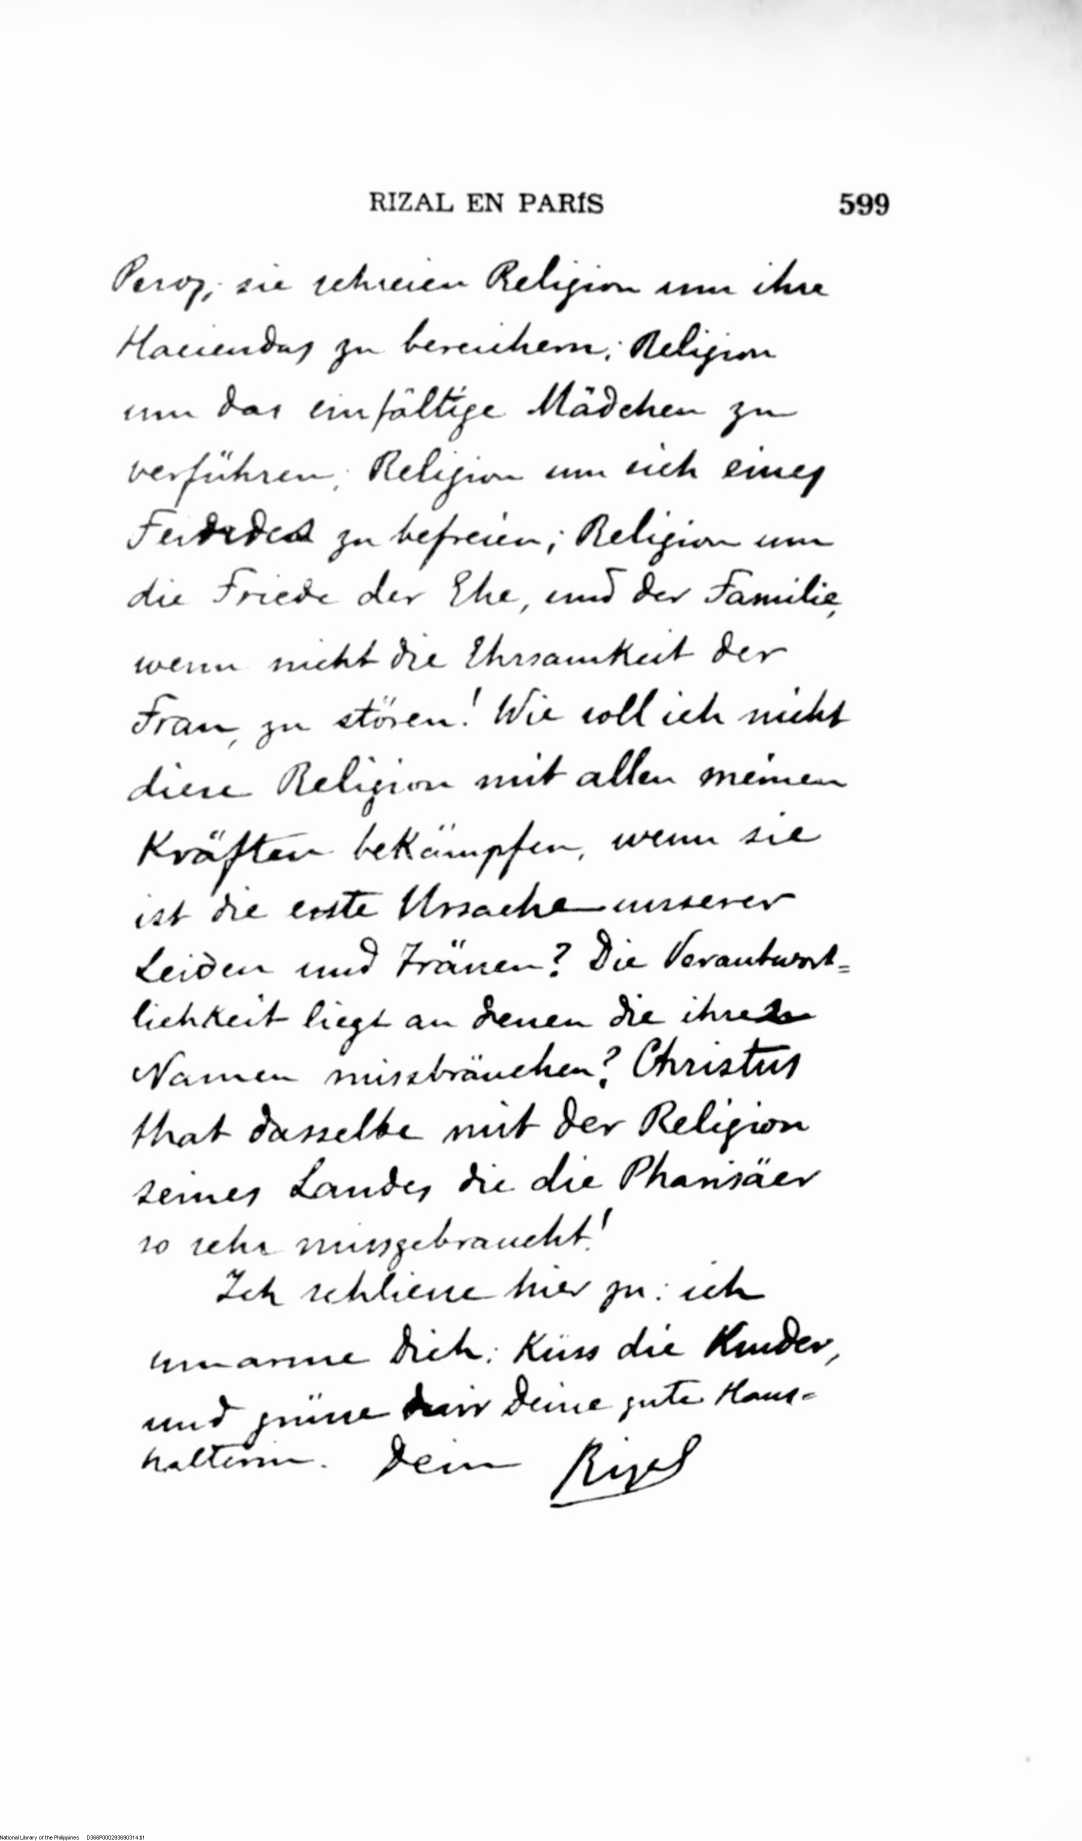 RIZAL EN PARÍS 599
sie schreien Religion um ihre
Haciendas zu bereichern; Religion
um das einfältige Mädchen zu
verführen; Religion um sich eines
zu befreien; Religion um
die Friede der Ehe, und der Familie,
wenn nicht die Ehrsamkeit der
Frau, zu stören! Wie soll ich nicht
diese Religion mit allen meinen
Kräften bekämpfen, wenn sie
ist die erste Ursache unserer
Leiden und Tränen? Die Verantwort=
lichkeit liegt an denen die ihren
Namen missbräuchen? Christus
that dasselbe mit der Religion
seines Landes die die Pharisäer
so sehr missgebraucht!
Ich schliesse hier zu: ich
umarme Dich: Küss die Kinder,
und grüsse Deine gute Haus=
hälterin. Dein Rizal
National Library of the Philippines